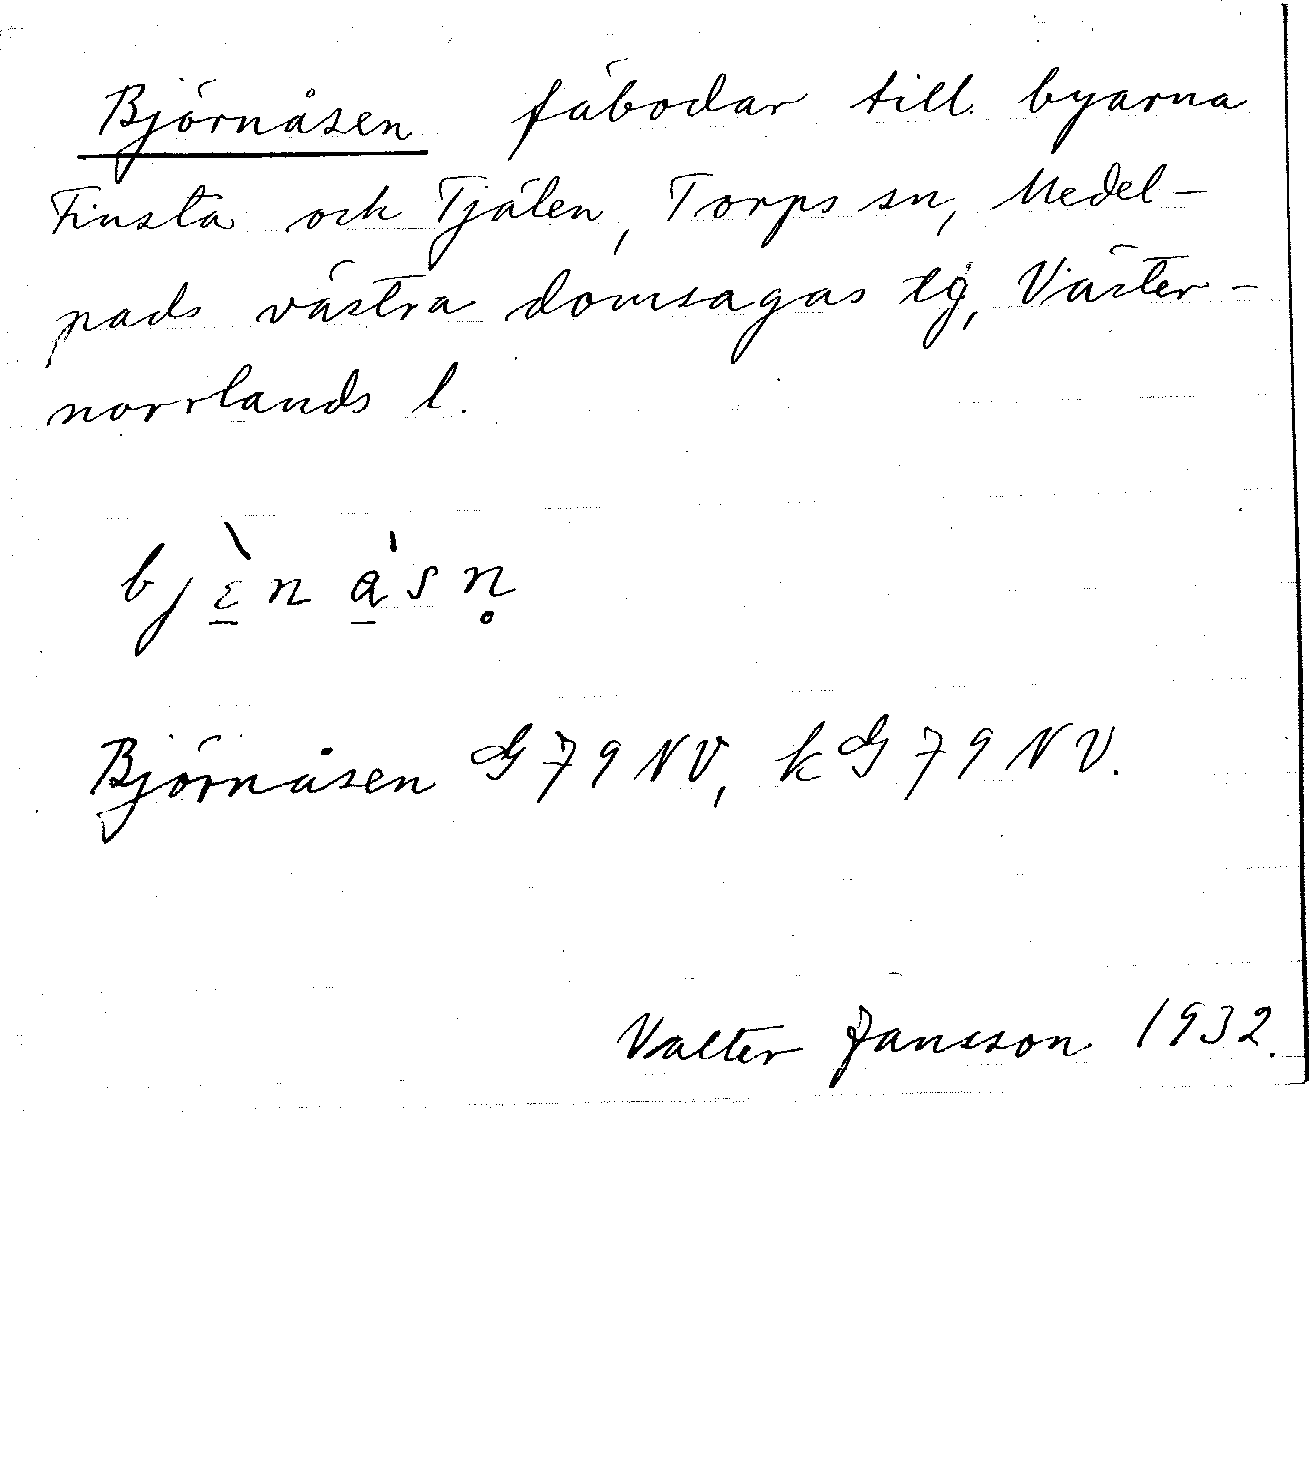 Björnåsen fäbodar till byarna
Finsta och Tjälen, Torps sn, Medel-
pads västra domsagas tg, Väster-
norrlands l.
bjɛ̱̀n a̱̍sn̥
Björnåsen G 79 NV, kG 79 NV.
Valter Jansson 1932.